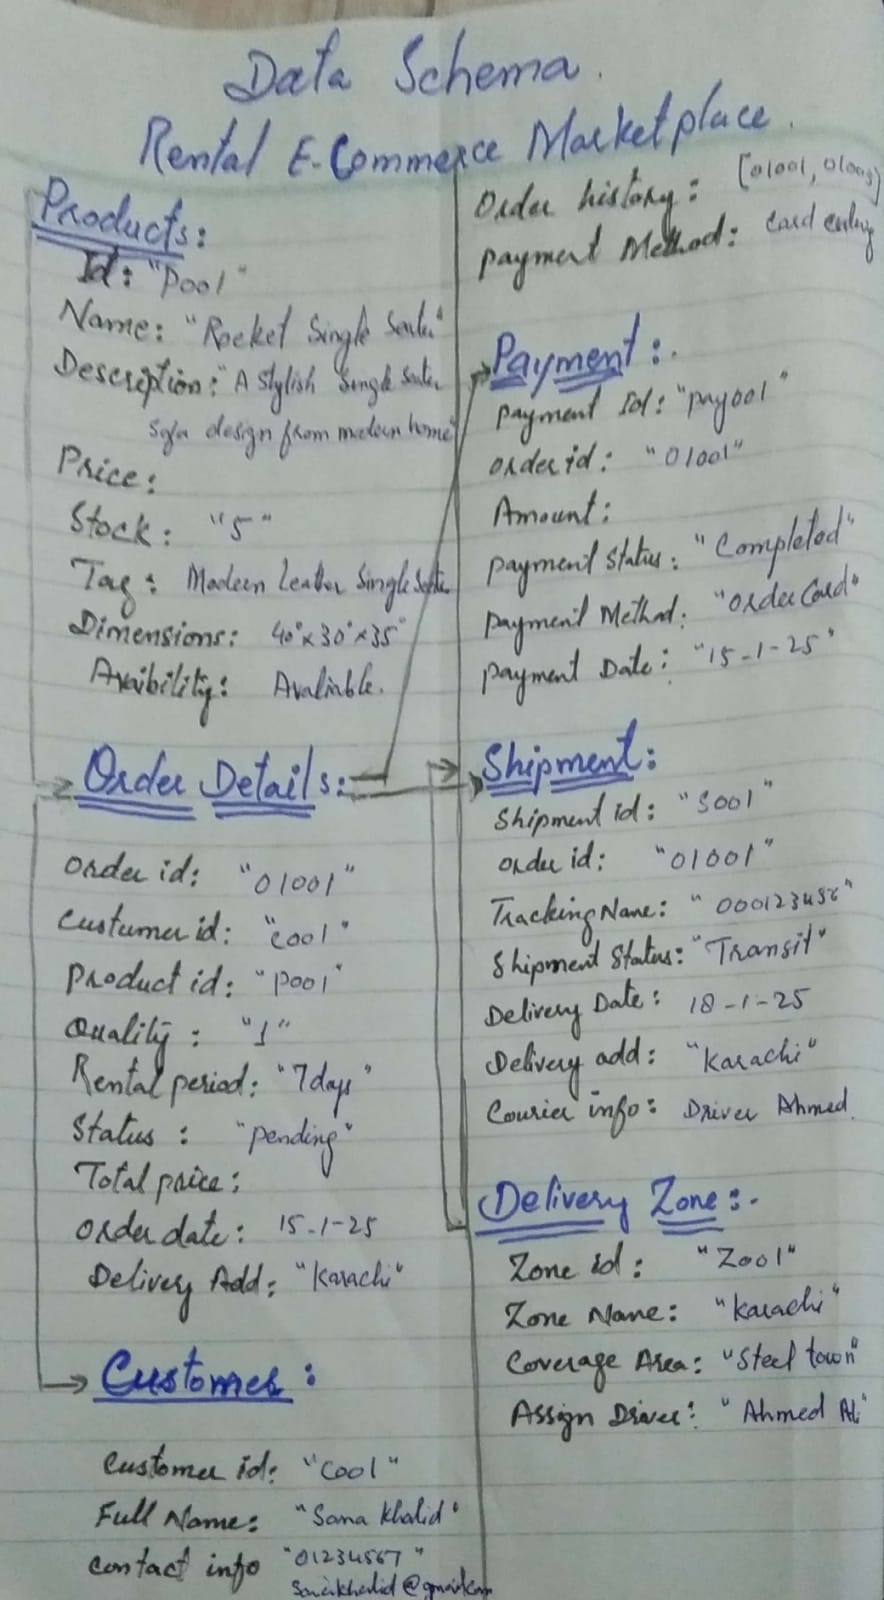 Data Schema.
Rental E-Commerce Marketplace.
Products:
Id: "P001"
Name: "Rocket Single Seater"
Description: "A stylish Single Seater
Sofa design from modern home"
Price:
Stock: "5"
Tag: Modern Leather Single Seater
Dimensions: 40"x30"x35"
Avaibility: Avaliable.
Order Details:
Order id: "01001"
Custumer id: "C001"
Product id: "P001"
Quality: "1"
Rental period: "7days"
Status: "pending"
Total price:
Order date: 15-1-25
Delivery Add: "Karachi"
Customer:
Customer id: "C001"
Full Name: "Sana Khalid"
contact info "01234567"
@gmail.com
Order history: [01001, 01003]
Payment Method: Card
Payment:.
Payment Id: "pay001"
Order id: "01001"
Amount:
Payment Status: "Completed"
Payment Method: "Order Card"
Payment Date: "15-1-25"
Shipment:
Shipment id: "S001"
Order id: "01001"
Tracking Name: "000123456"
Shipment Status: "Transit"
Delivery Date: 18-1-25
Delivery add: "Karachi"
Courier info: Driver Ahmed
Delivery Zone:.
Zone id: "Z001"
Zone Name: "Karachi"
Coverage Area: "Steel town"
Assign Driver: "Ahmed Ali"